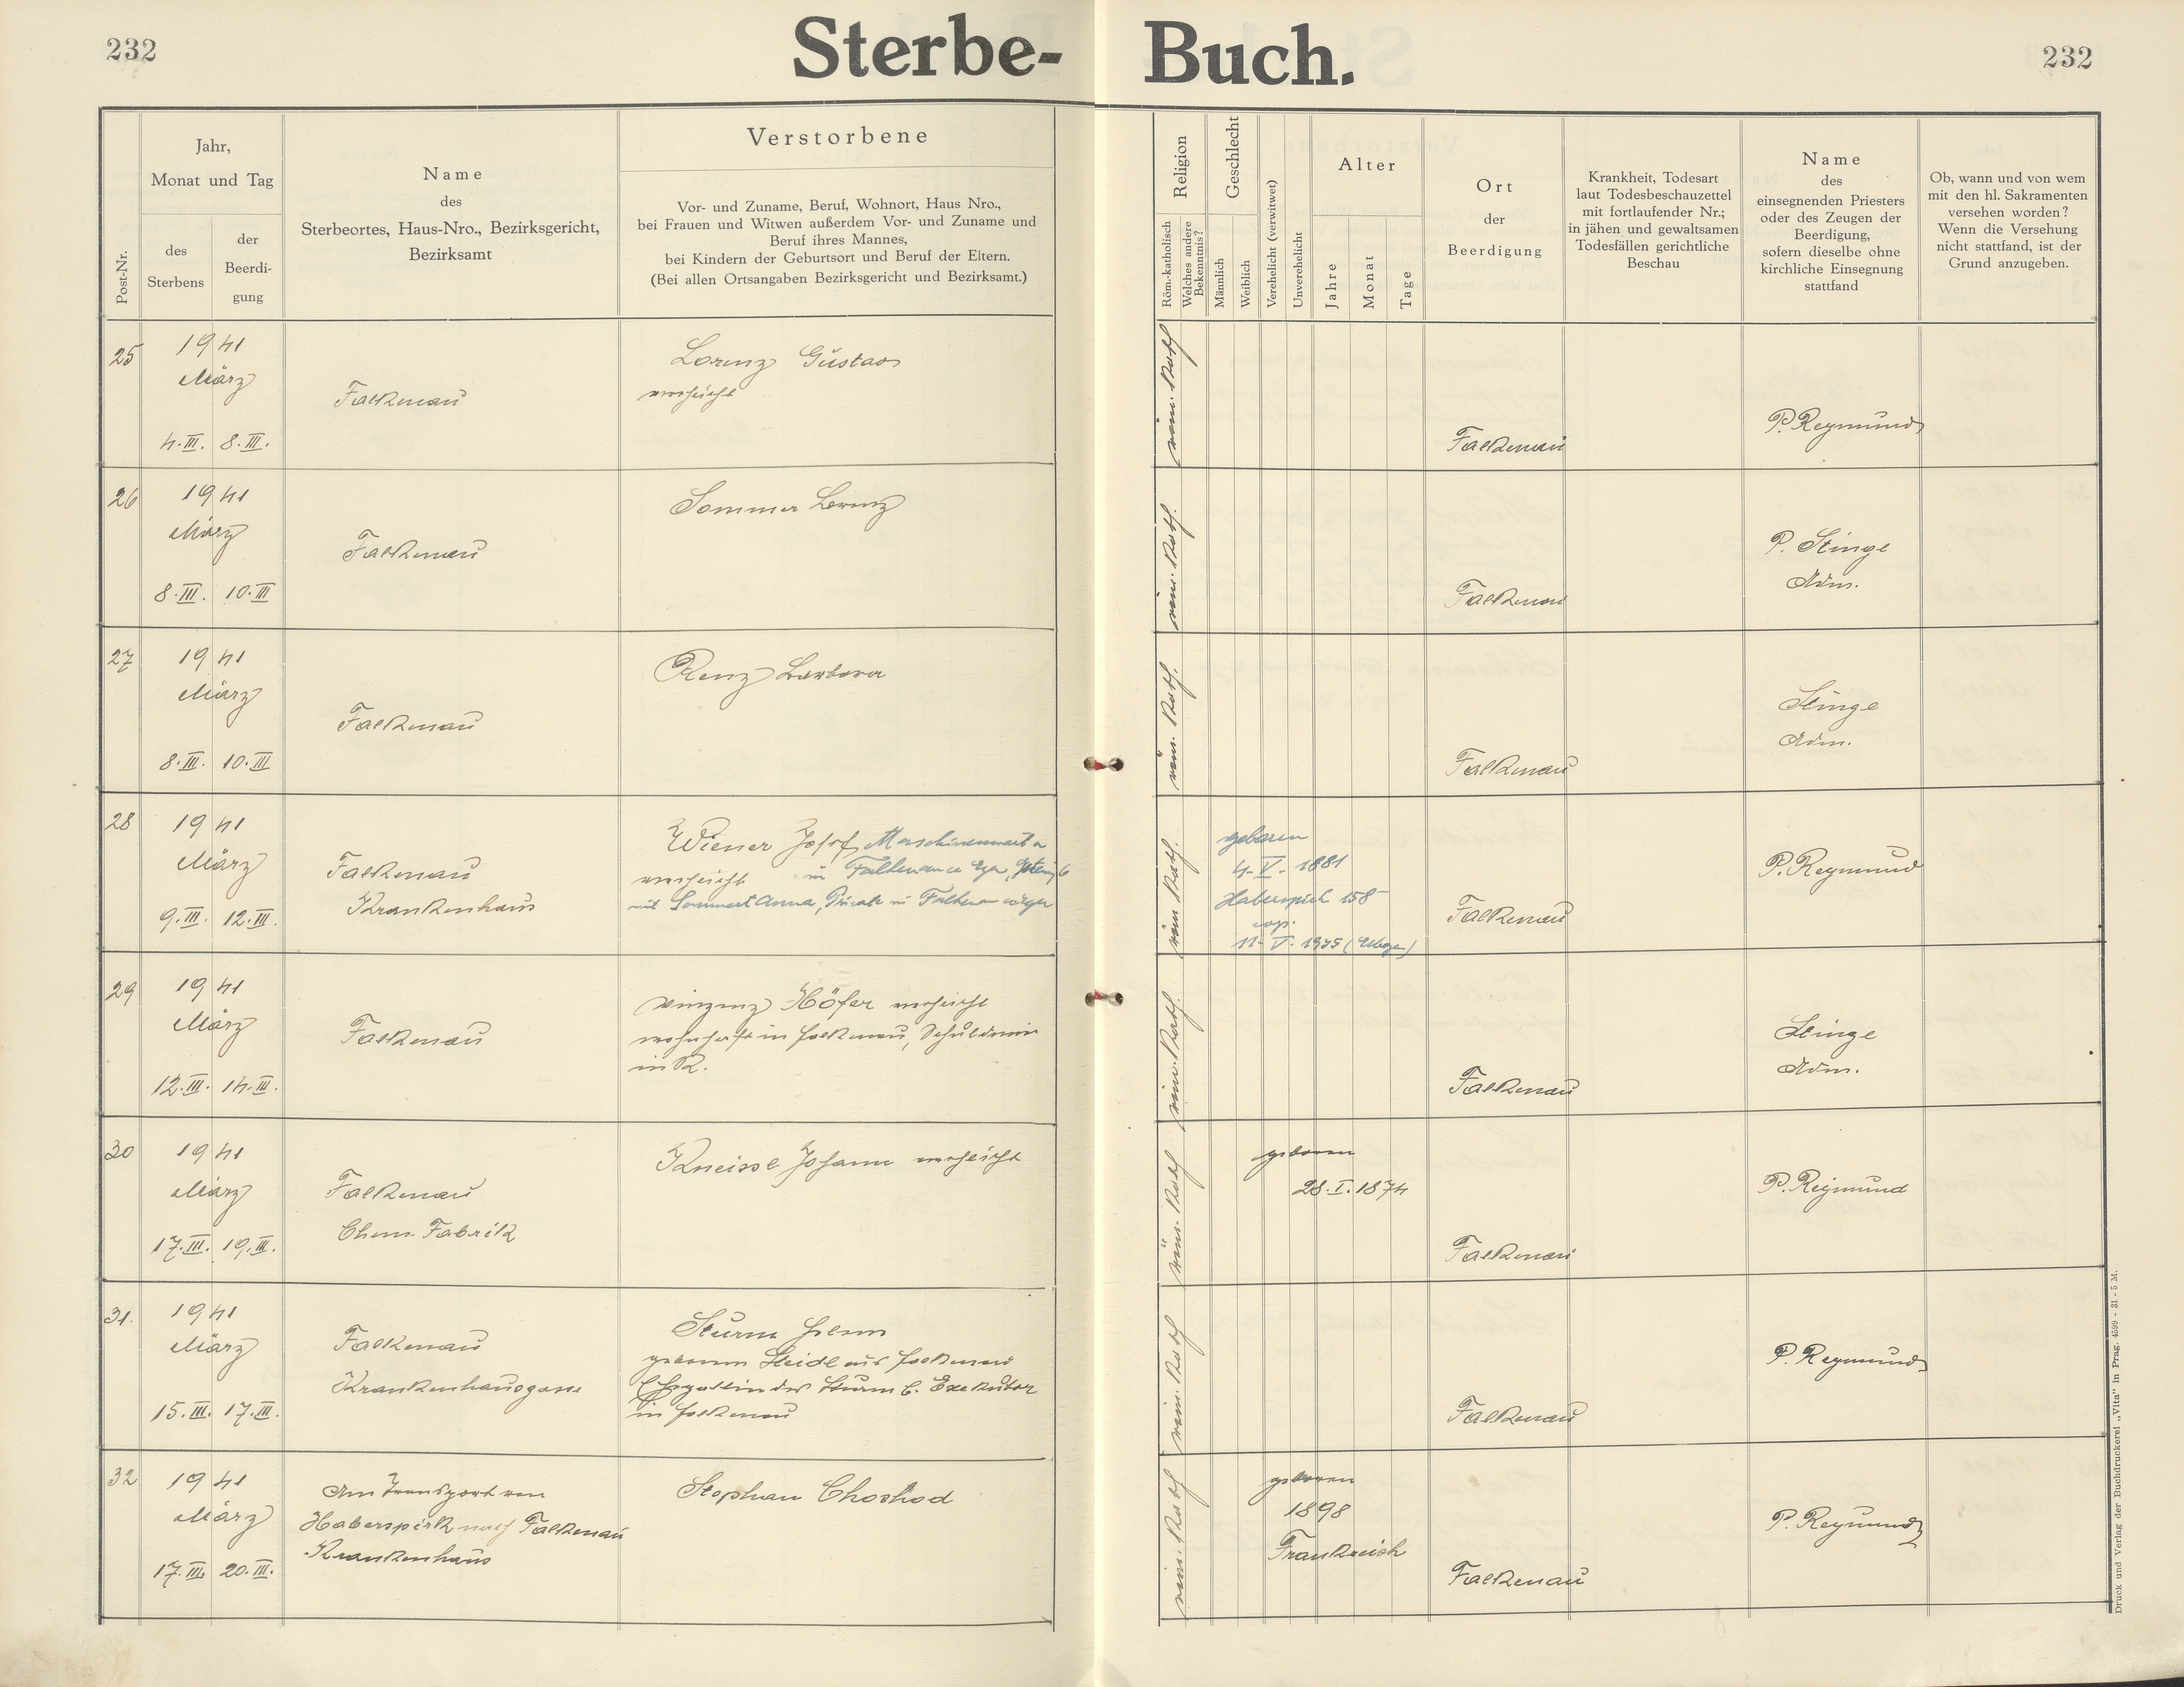 232
Sterbe- Buch.
232
Post-Nr.
Jahr,
Monat und Tag
des
Sterbens
der
Beerdi-
gung
Name
des
Sterbeortes, Haus-Nro., Bezirksgericht,
Bezirksamt
Verstorbene
Vor- und Zuname, Beruf, Wohnort, Haus Nro.,
bei Frauen und Witwen außerdem Vor- und Zuname und
Beruf ihres Mannes,
bei Kindern der Geburtsort und Beruf der Eltern.
(Bei allen Ortsangaben Bezirksgericht und Bezirksamt.)
Religion
Röm.-katholisch
Welches andere
Bekenntnis?
Geschlecht
Männlich
Weiblich
Verehelicht (verwitwet)
Unverehelicht
Alter
Jahre
Monat
Tage
Ort
der
Beerdigung
Krankheit, Todesart
laut Todesbeschauzettel
mit fortlaufender Nr.;
in jähen und gewaltsamen
Todesfällen gerichtliche
Beschau
Name
des
einsegnenden Priesters
oder des Zeugen der
Beerdigung,
sofern dieselbe ohne
kirchliche Einsegnung
stattfand
Ob, wann und von wem
mit den hl. Sakramenten
versehen worden?
Wenn die Versehung
nicht stattfand, ist der
Grund anzugeben.
25
1941
März
4.III. 8.III.
Falkenau
Lorenz Gustav
verehelicht
röm. kath
Falkenau
P. Reymund
26
1941
März
8.III. 10.III
Falkenau
Sommer Lorenz
röm. kath.
Falkenau
P. Stingl
Adm.
27
1941
März
8.III. 10.III
Falkenau
Renz Barbara
röm. kath.
Falkenau
Stingl
Adm.
28
1941
März
9.III. 12.III.
Falkenau
Krankenhaus
Wiener Josef, Maschinenwart
verehelicht in Falkenau
mit Sommert Anna, Private in Falkenau
röm kath.
geboren
4. V. 1881
Haberspirk 158
cop.
11. V. 1935
Falkenau
P. Reymund
29
1941
März
12.III. 14.III.
Falkenau
Vinzenz Höfer verehelicht
wohnhaft in Falkenau, Schuldiener
in R.
röm. kath.
Falkenau
Stingl
Adm.
30
1941
März
17.III. 19.III.
Falkenau
Chem. Fabrik
Kneissl Johann verehelicht
röm. kath
geboren
28.I.1874
Falkenau
P. Reymund
31.
1941
März
15.III. 17.III.
Falkenau
Krankenhausgasse
Sturm
geborene Heidl aus Falkenau
Ehegattin des Sturm E. Exekutor
in Falkenau
röm. kath
Falkenau
P. Reymund
32
1941
März
17.III. 20.III.
Am Transport von
Haberspirk nach Falkenau
Krankenhaus
Stephan Choshod
röm. kath
geboren
1898
Frankreich
Falkenau
P. Reymund
Druck und Verlag der Buchdruckerei „Vita" in Prag. 4599 - 31 - 5 M.